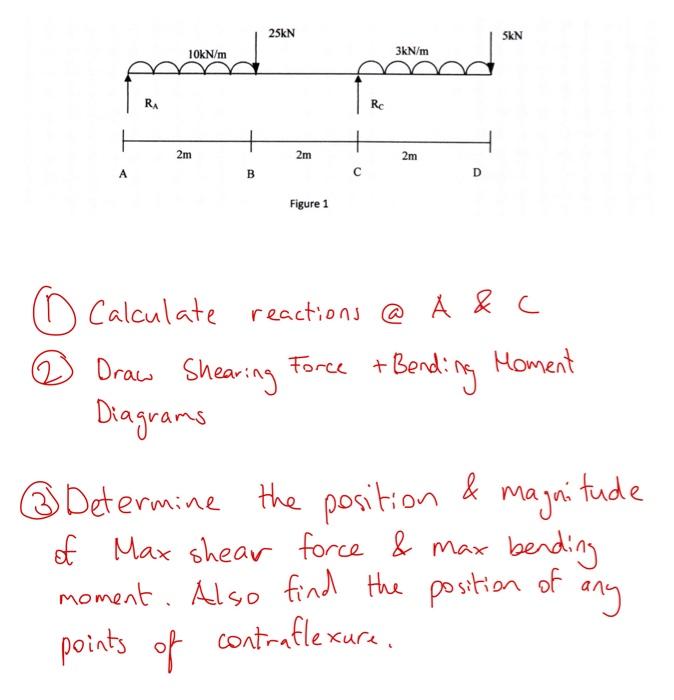 25kN
5kN
10kN/m
3kN/m
RA
RC
2m
2m
2m
A
B
C
D
Figure 1
① Calculate reactions @ A & C
② Draw Shearing Force + Bending Moment
Diagrams
③ Determine the position & magnitude
of Max shear force & max bending
moment. Also find the position of any
points of contraflexure.